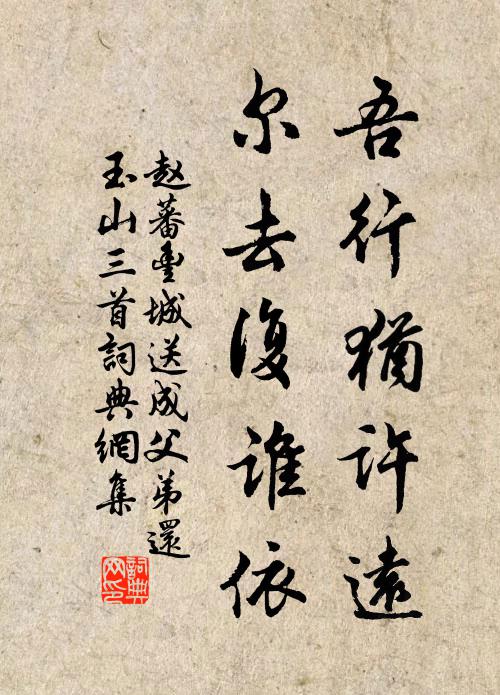 吾行猶許遠
尔去復誰依
赵蕃豊城送成父弟還
玉山三首詞典網集
詞典
网印